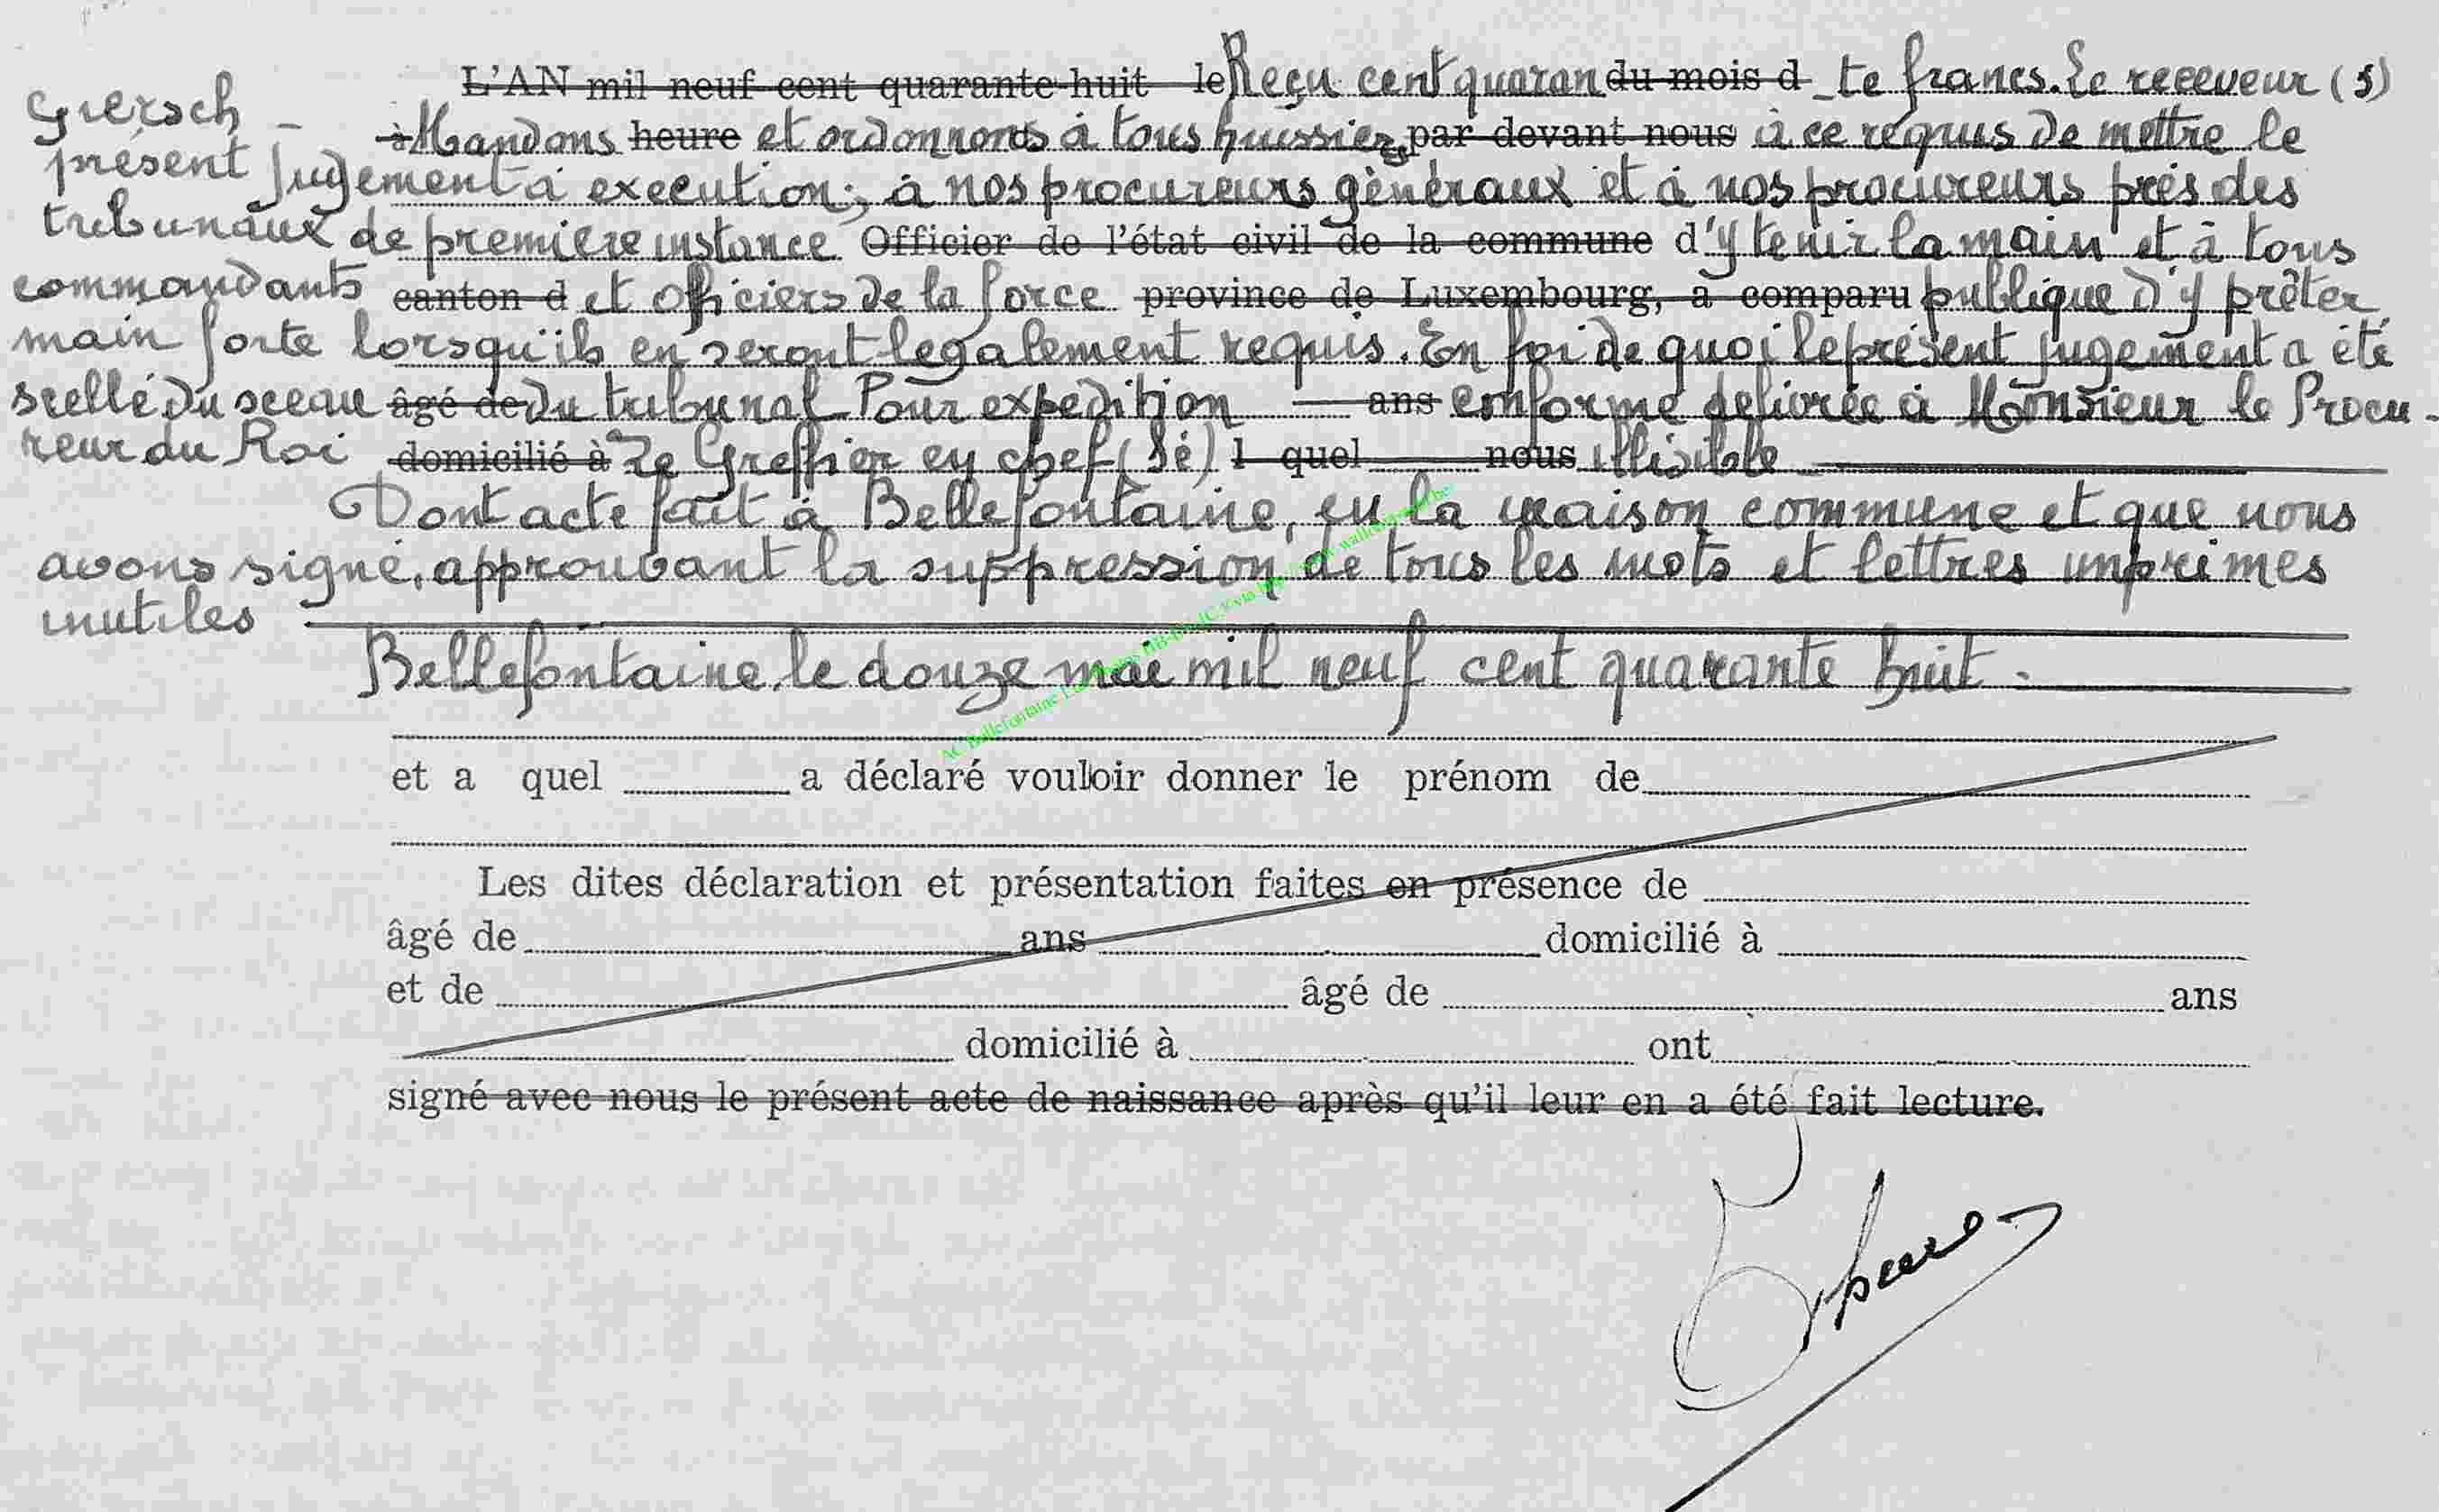 L'AN mil neuf cent quarante-huit le Reçu cent quaran du mois d te francs. Le receveur (s)
Giersch à Mandons heure et ordonnons à tous huissiers par devant nous à ce requis de mettre le
présent jugement à execution; à nos procureurs généraux et à nos procureurs près des
tribunaux de première instance Officier de l'état civil de la commune d'y tenir la main et à tous
commandants canton d et officiers de la force province de Luxembourg, a comparu publique d'y prêter
main forte lorsqu'ils en seront legalement requis. En foi de quoi le présent jugement a été
scellé du sceau âgé de du tribunal Pour expedition ans conforme delivrée à Monsieur le Procu-
reur du Roi domicilié à Le Greffier en chef (Sé) l quel nous illisible
Dont acte fait à Bellefontaine, en la maison commune et que nous
avons signé, approuvant la suppression de tous les mots et lettres imprimés
inutiles
Bellefontaine, le douze mai mil neuf cent quarante huit.
et a quel a déclaré vouloir donner le prénom de
Les dites déclaration et présentation faites en présence de
âgé de ans domicilié à
et de âgé de ans
domicilié à ont
signé avec nous le présent acte de naissance après qu'il leur en a été fait lecture.